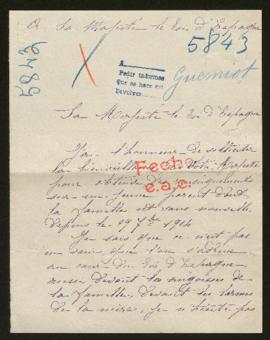 A Sa Majesté le Roi d'Espagne
5843
5843
A
Pedir informes
que se hace así
Devolver
Guennot
Sa Majesté le Roi d'Espagne
J'ai l'honneur de solliciter
la bienveillance de Votre Majesté
pour obtenir des renseignements
sur un jeune parent dont
la famille est sans nouvelle
depuis le 17 7bre 1914
Fech
e.a.c.
Je sais que ce n'est pas
en vain que l'on s'adresse
au cœur du Roi d'Espagne
aussi devant les angoisses de
la famille, devant les larmes
de la mère, je n'hésite pas